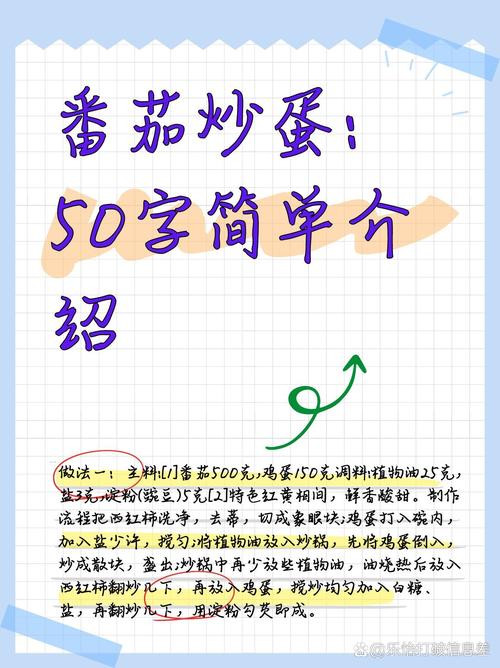 番茄炒蛋:
50字简单介
绍
做法一:主料:[1]番茄500克,鸡蛋150克调料:植物油25克,
盐3克,淀粉(豌豆)5克[2]特色红黄相间,鲜香酸甜。制作
流程把西红柿洗净,去蒂,切成象眼块;鸡蛋打入碗内,
加入盐少许,搅匀;将植物油放入炒锅,先将鸡蛋倒入,
炒成散块,盛出;炒锅中再少放些植物油,油烧热后放入
西红柿翻炒几下,再放入鸡蛋,搅炒均匀加入白糖、
盐,再翻炒几下,用淀粉勾芡即成。
@乐怡打破信息差